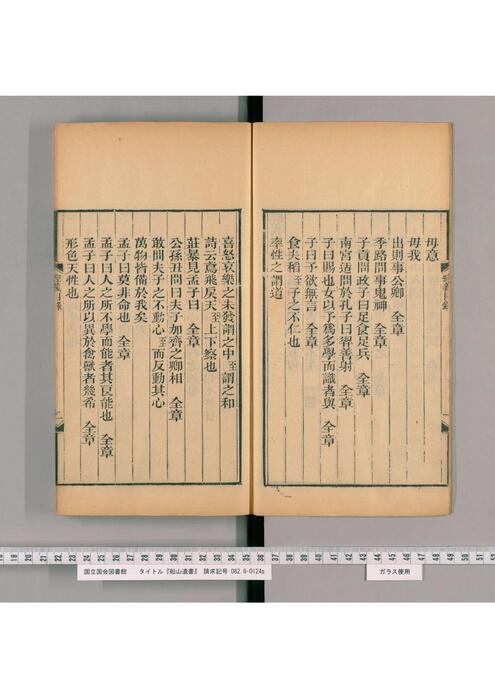 毋意
毋我
出則事公卿　全章
季路問事鬼神　全章
子貢問政子曰足食足兵　全章
南宮适問於孔子曰羿善射　全章
子曰賜也女以予爲多學而識者與　全章
子曰予欲無言　全章
食夫稻至予之不仁也
率性之謂道
喜怒哀樂之未發謂之中至謂之和
詩云鳶飛戾天至上下察也
莊暴見孟子曰　全章
公孫丑問曰夫子加齊之卿相　全章
敢問夫子之不動心至而反動其心
萬物皆備於我矣
孟子曰莫非命也　全章
孟子曰人之所不學而能者其良能也　全章
孟子曰人之所以異於禽獸者幾希　全章
形色天性也
国立国会図書館　タイトル『船山遺書』　請求記号 082.6-0124s
ガラス使用